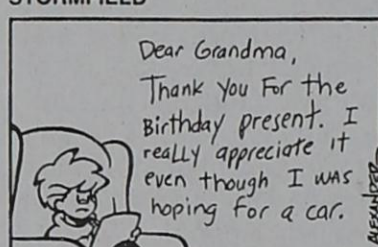 STORMFIELD
Dear Grandma,
Thank You For the
Birthday present. I
really appreciate it
even though I was
hoping for a car.
ALEXANDER